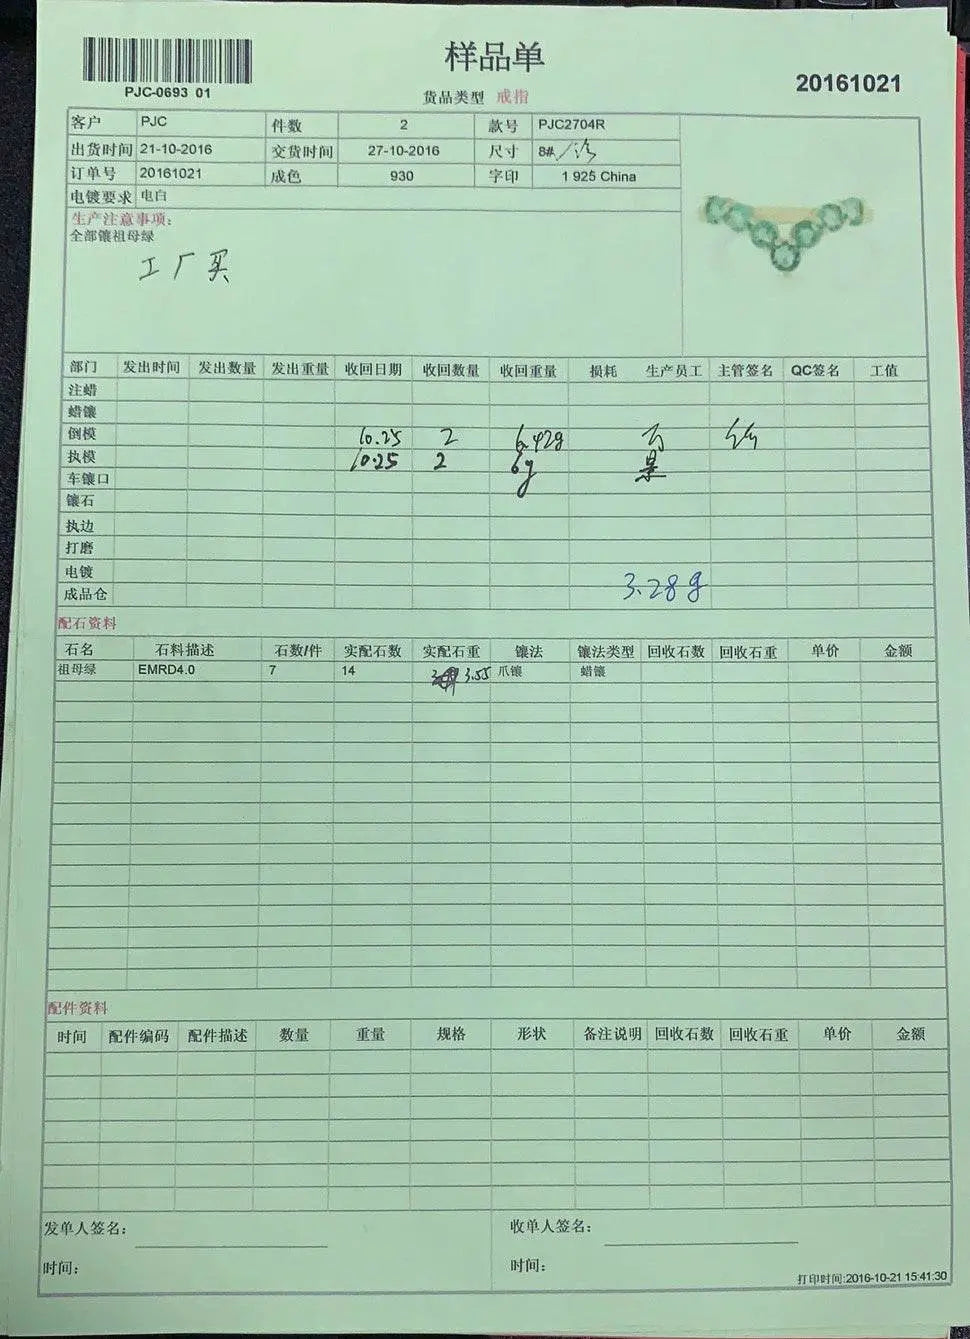 样品单
PJC-0693 01
货品类型 戒指
20161021
客户 PJC 件数 2 款号 PJC2704R
出货时间 21-10-2016 交货时间 27-10-2016 尺寸 8#
订单号 20161021 成色 930 字印 1 925 China
电镀要求 电白
生产注意事项:
全部镶祖母绿
工厂买
部门 发出时间 发出数量 发出重量 收回日期 收回数量 收回重量 损耗 生产员工 主管签名 QC签名 工值
注蜡
蜡镶
倒模 10.25 2 6.42g
执模 10.25 2 6g
车镶口
镶石
执边
打磨
电镀
成品仓 3.28g
配石资料
石名 石料描述 石数/件 实配石数 实配石重 镶法 镶法类型 回收石数 回收石重 单价 金额
祖母绿 EMRD4.0 7 14 3.55 爪镶 蜡镶
配件资料
时间 配件编码 配件描述 数量 重量 规格 形状 备注说明 回收石数 回收石重 单价 金额
发单人签名: 收单人签名:
时间: 时间:
打印时间:2016-10-21 15:41:30